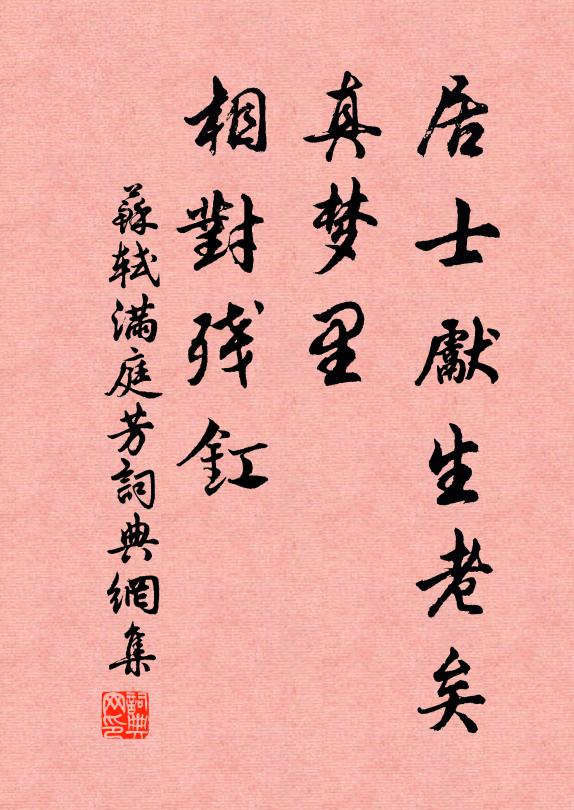 居士獻生老矣
真梦里
相對残釭
蘇軾滿庭芳詞典網集
詞典网印